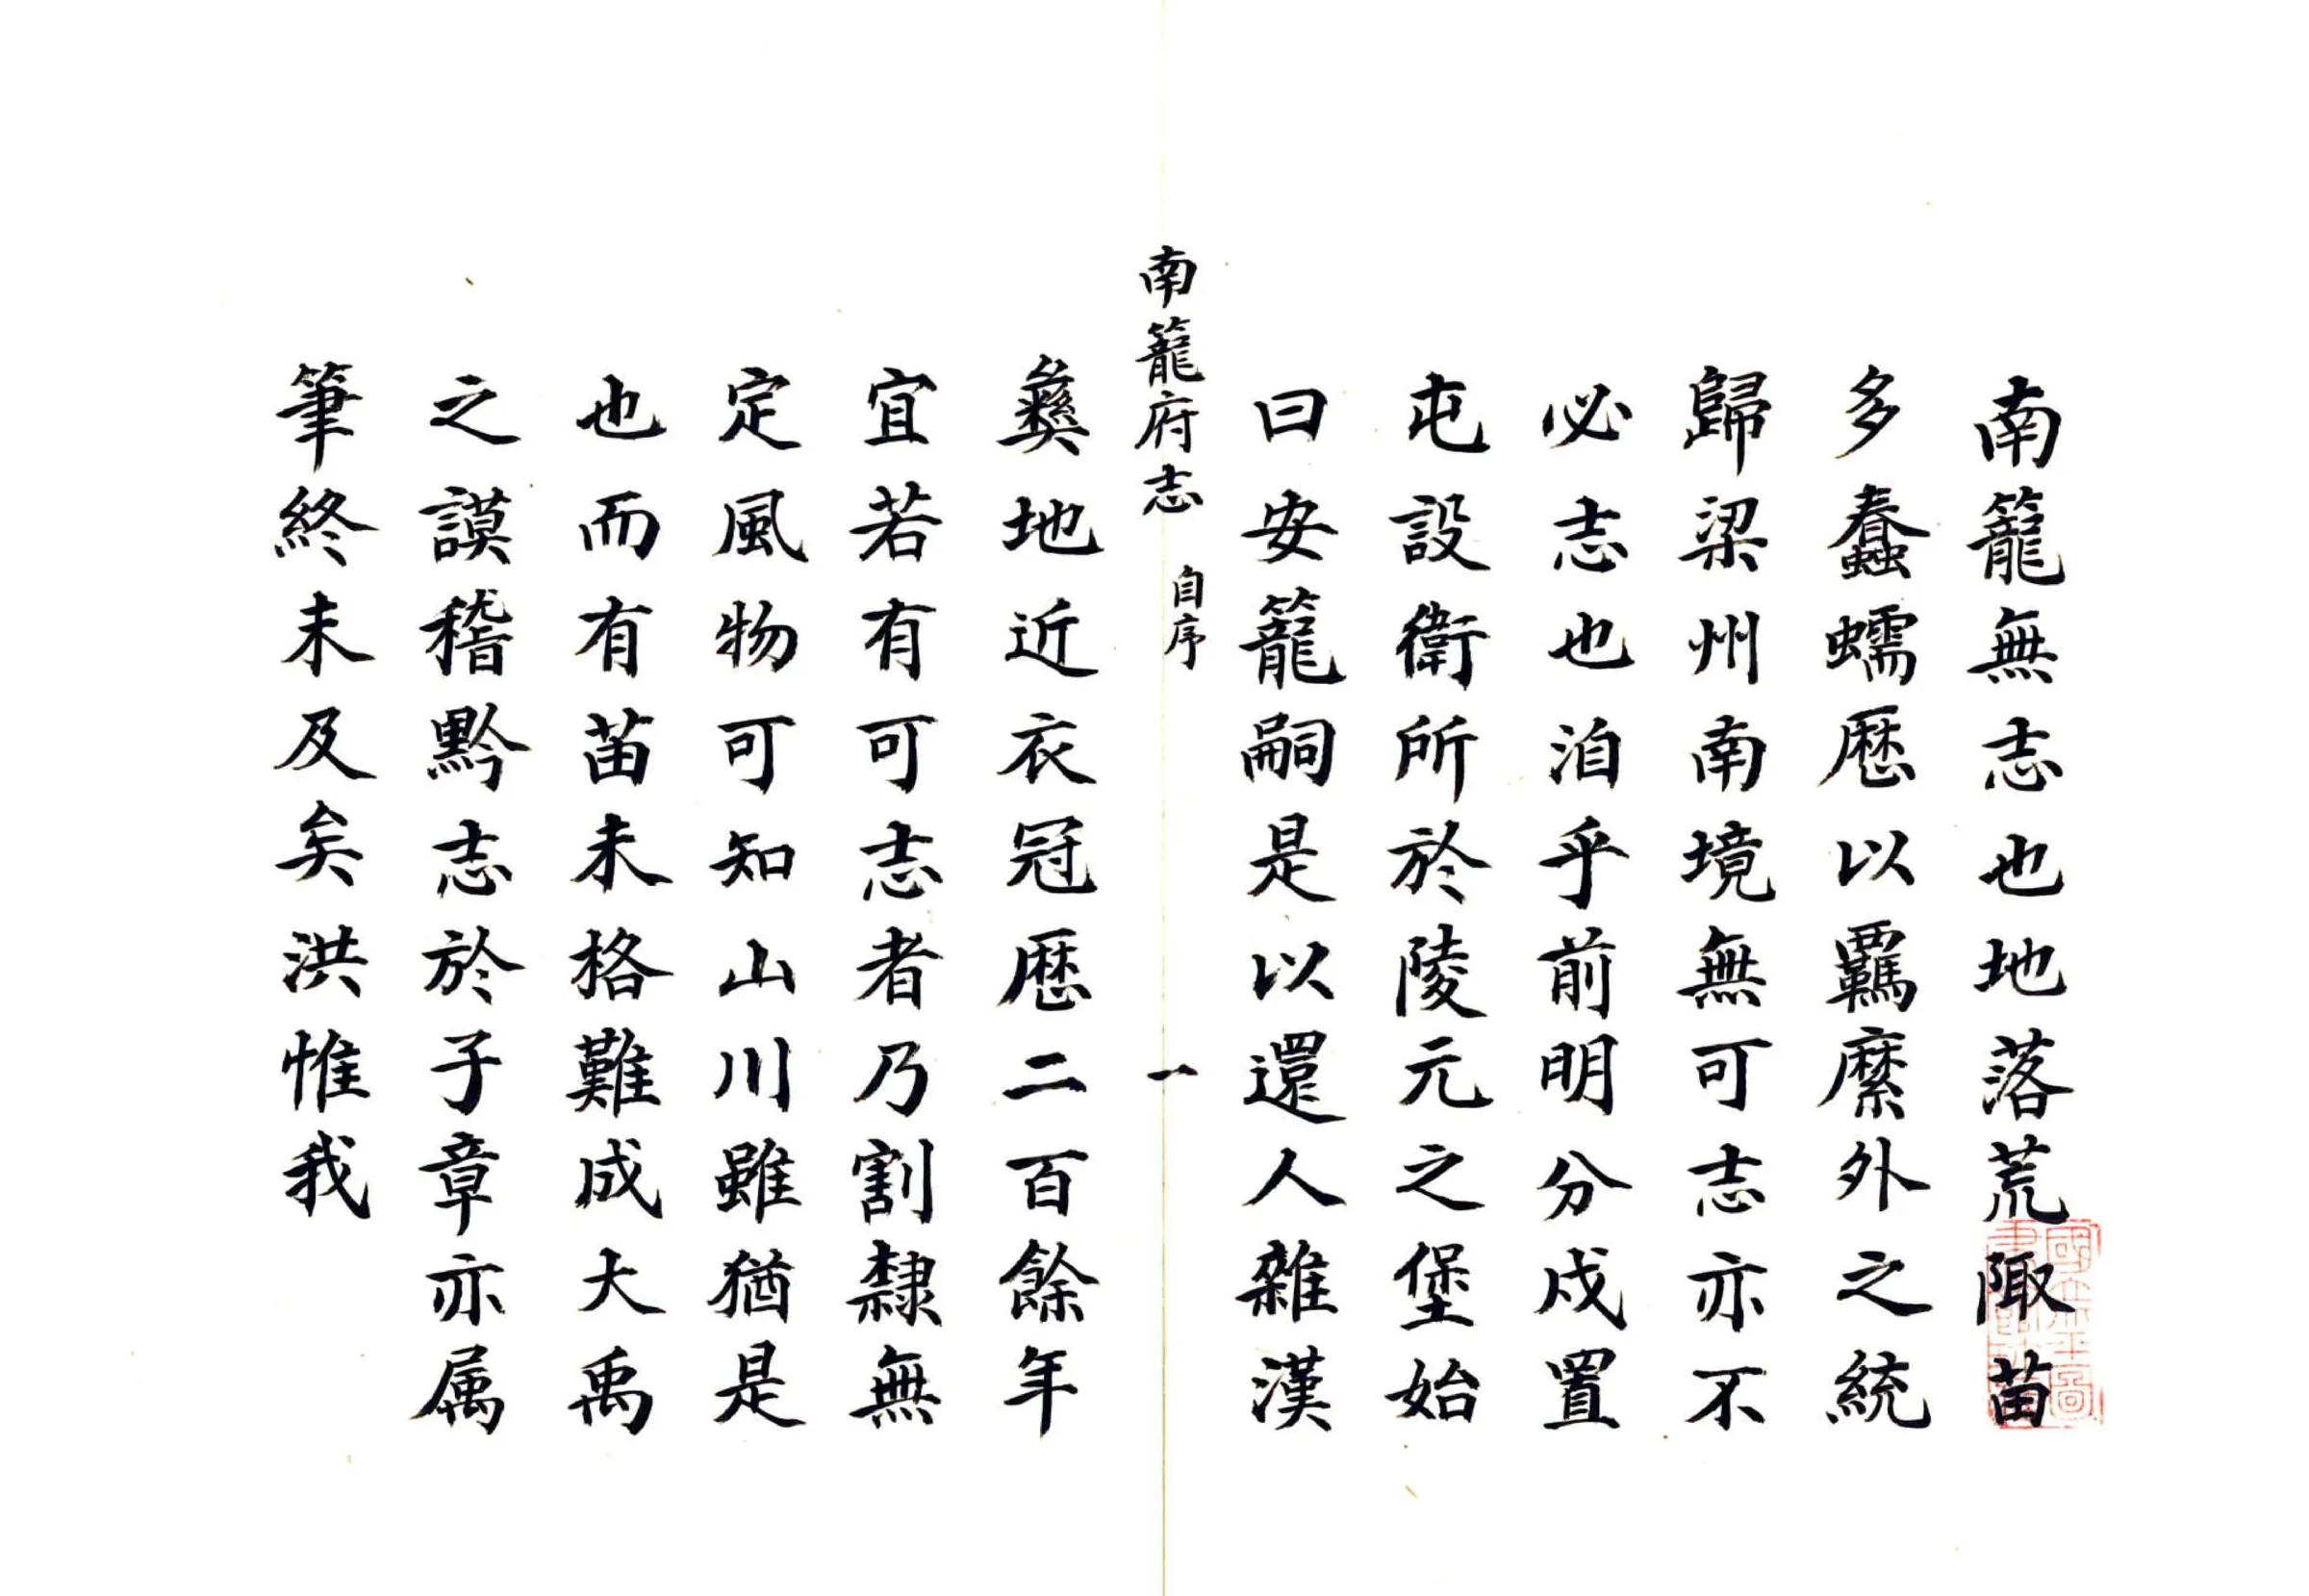 南籠無志也地落荒陬苗
多蠢蠕厯以羈縻外之統
歸梁州南境無可志亦不
必志也洎乎前明分戍置
屯設衛所於陵元之堡始
曰安籠嗣是以還人雜漢
南籠府志 自序 一
彝地近衣冠厯二百餘年
宜若有可志者乃割隸無
定風物可知山川雖猶是
也而有苗未格難成大禹
之謨稽黔志於子章亦属
筆終未及矣洪惟我